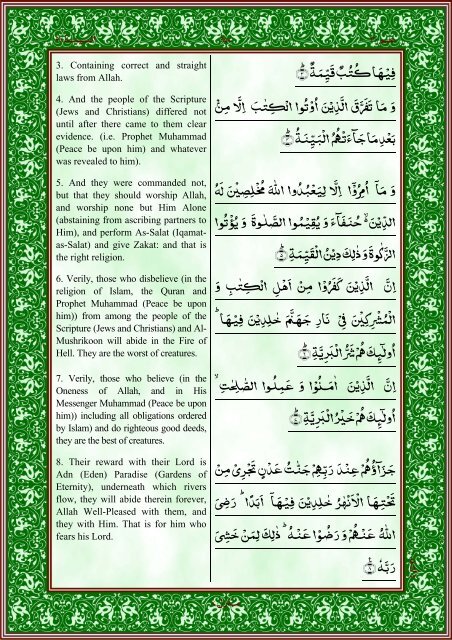 3. Containing correct and straight
laws from Allah.
فِيْهَا كُتُبٌ قَيِّمَةٌ ﴿٣﴾
4. And the people of the Scripture
(Jews and Christians) differed not
until after there came to them clear
evidence. (i.e. Prophet Muhammad
(Peace be upon him) and whatever
was revealed to him).
وَ مَا تَفَرَّقَ الَّذِيْنَ اُوْتُوا الْكِتٰبَ اِلَّا مِنْۢ
بَعْدِ مَا جَآءَتْهُمُ الْبَيِّنَةُ ﴿٤﴾
5. And they were commanded not,
but that they should worship Allah,
and worship none but Him Alone
(abstaining from ascribing partners to
Him), and perform As-Salat (Iqamat-
as-Salat) and give Zakat: and that is
the right religion.
وَ مَآ اُمِرُوْٓا اِلَّا لِيَعْبُدُوا اللّٰهَ مُخْلِصِيْنَ لَهُ
الدِّيْنَ ۙ حُنَفَآءَ وَ يُقِيْمُوا الصَّلٰوةَ وَ يُؤْتُوا
الزَّكٰوةَ وَ ذٰلِكَ دِيْنُ الْقَيِّمَةِ ﴿٥﴾
6. Verily, those who disbelieve (in the
religion of Islam, the Quran and
Prophet Muhammad (Peace be upon
him)) from among the people of the
Scripture (Jews and Christians) and Al-
Mushrikoon will abide in the Fire of
Hell. They are the worst of creatures.
اِنَّ الَّذِيْنَ كَفَرُوْا مِنْ اَهْلِ الْكِتٰبِ وَ
الْمُشْرِكِيْنَ فِيْ نَارِ جَهَنَّمَ خٰلِدِيْنَ فِيْهَا ؕ
اُولٰٓئِكَ هُمْ شَرُّ الْبَرِيَّةِ ﴿٦﴾
7. Verily, those who believe (in the
Oneness of Allah, and in His
Messenger Muhammad (Peace be upon
him)) including all obligations ordered
by Islam) and do righteous good deeds,
they are the best of creatures.
اِنَّ الَّذِيْنَ اٰمَنُوْا وَ عَمِلُوا الصّٰلِحٰتِ ۙ
اُولٰٓئِكَ هُمْ خَيْرُ الْبَرِيَّةِ ﴿٧﴾
8. Their reward with their Lord is
Adn (Eden) Paradise (Gardens of
Eternity), underneath which rivers
flow, they will abide therein forever,
Allah Well-Pleased with them, and
they with Him. That is for him who
fears his Lord.
جَزَآؤُهُمْ عِنْدَ رَبِّهِمْ جَنّٰتُ عَدْنٍ تَجْرِيْ مِنْ
تَحْتِهَا الْاَنْهٰرُ خٰلِدِيْنَ فِيْهَآ اَبَدًا ؕ رَضِيَ
اللّٰهُ عَنْهُمْ وَ رَضُوْا عَنْهُ ؕ ذٰلِكَ لِمَنْ خَشِيَ
رَبَّهٗ ﴿٨﴾